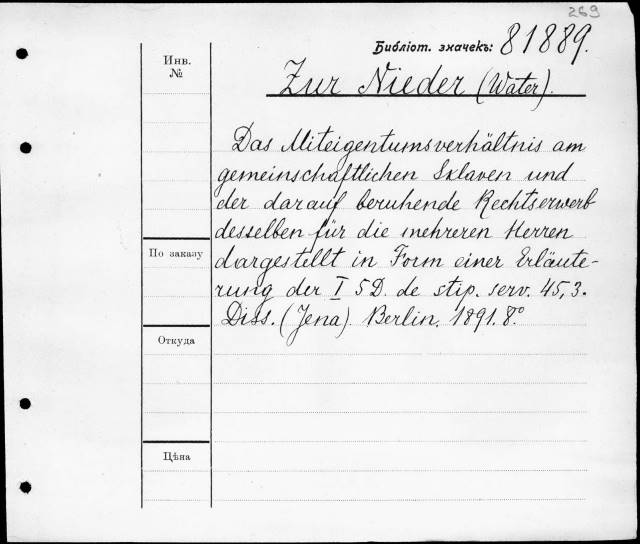 269
Библіот. значекъ: 81889.
Инв.
№
Zur Nieder (Water).
Das Miteigentumsverhältnis am
gemeinschaftlichen Sklaven und
der darauf beruhende Rechtserwerb
desselben für die mehreren Herren
По заказу
dargestellt in Form einer Erläute-
rung der I 5 D. de stip. serv. 45,3.
Diss. (Jena). Berlin. 1891. 8°
Откуда
Цѣна